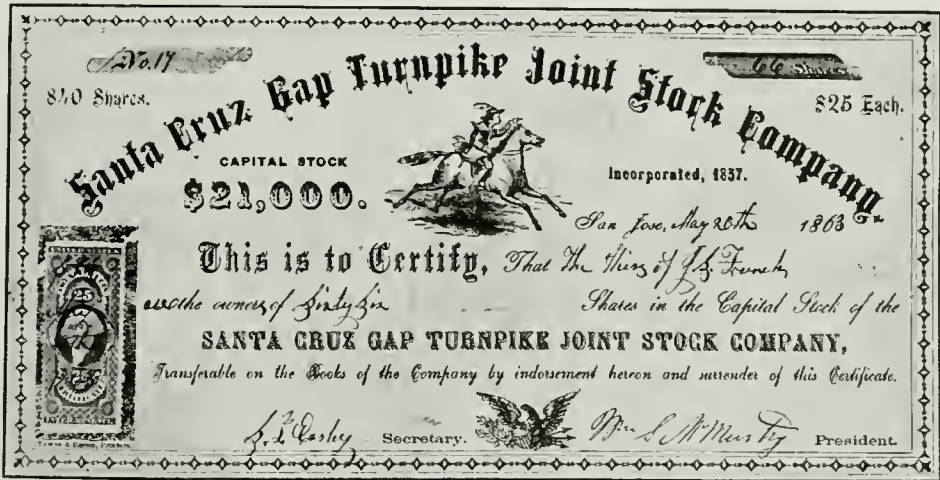 No. 17
66 Shares
840 Shares.
$25 Each.
Santa Cruz Gap Turnpike Joint Stock Company.
CAPITAL STOCK
$21,000.
Incorporated, 1857.
San Jose, May 20th 1863
This is to Certify, That The Heirs of J. L. French
are the owners of Sixty Six Shares in the Capital Stock of the
SANTA CRUZ GAP TURNPIKE JOINT STOCK COMPANY,
Transferable on the Books of the Company by indorsement hereon and surrender of this Certificate.
25
25
Secretary.
Wm S McMurtry President.